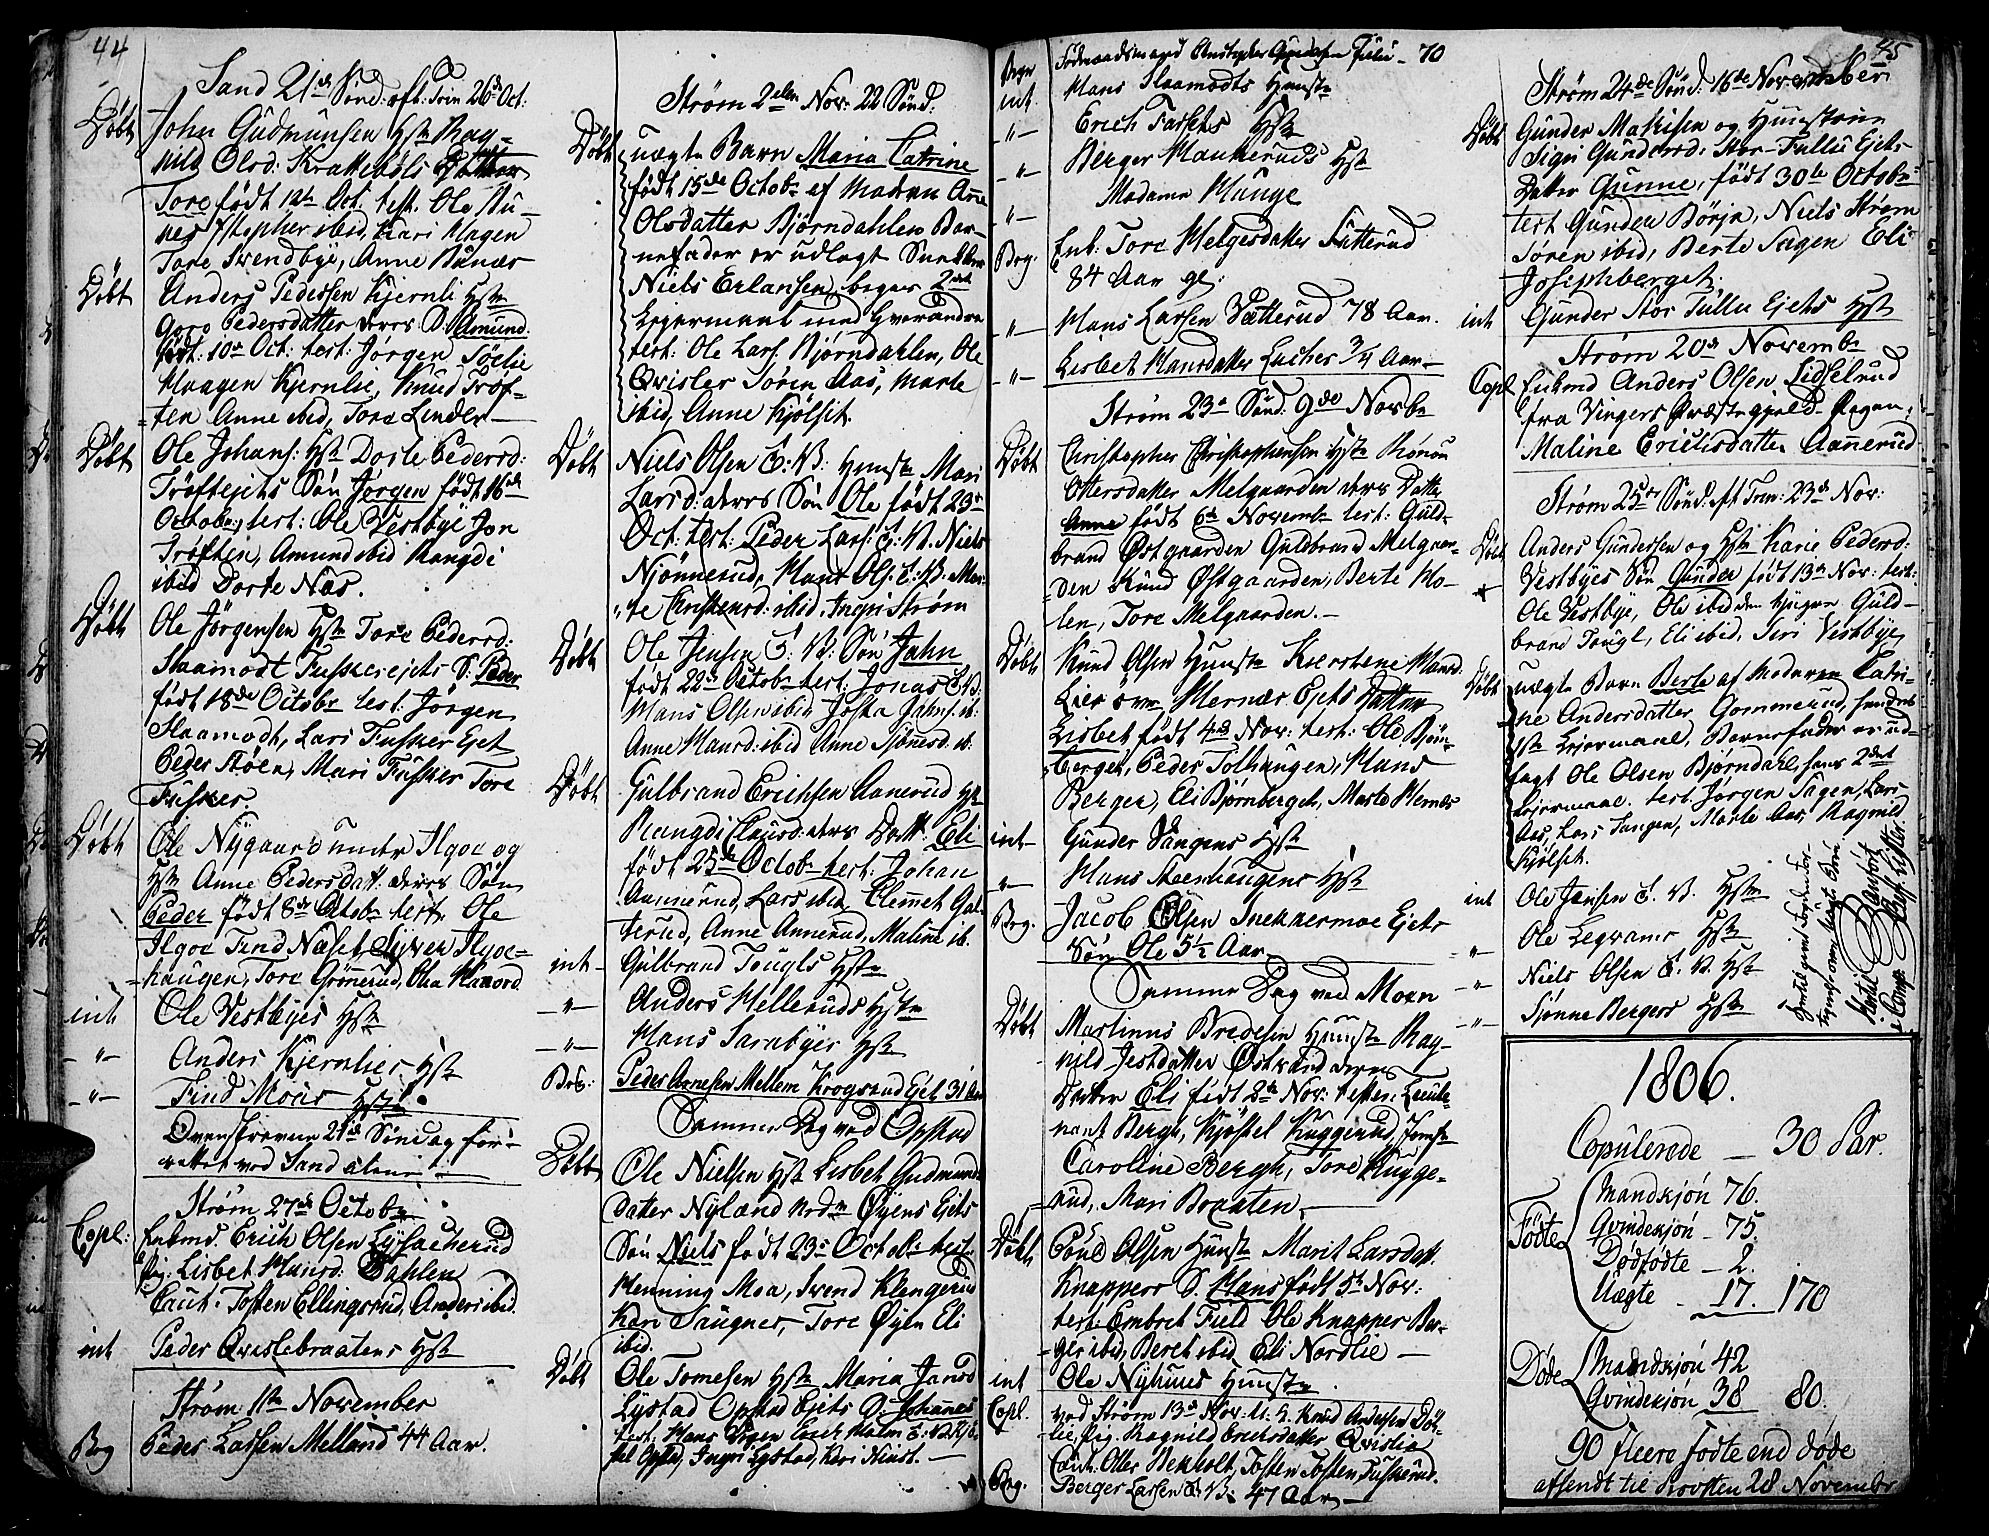 44
Sand 21de Sönd. eft. Trin 26de Oct:
Döbt John Gudmunsen Hstr Rag-
nild Olsd: Krakebøls Datter
Tore født 12te Oct. test. Ole Bu-
nes Christopher ibid, Kari Hagen
Tore Svendbye, Anne Bunæs
Döbt Anders Pedersen Kjernli Hstr
Goro Pedersdatter deres D: Amund
født: 10de Oct: test: Jørgen
Haagen Kjernlie, Knud Trøf-
ten Anne ibid, Tore Linder
Döbt Ole Johans: Hstr Dorte Pedersd:
Trøftejets Søn Jørgen født 16de
Octobr, test: Ole Vestbye Jon
Trøften, Amund ibid Rangdi
ibid Dorte Næs.
Döbt Ole Jørgensen Hstr Tore Pedersd:
Haamodt Fuskerejets S: Peder
født 18de Octobr test: Jørgen
Haamodt, Lars Fusker Ejet
Peder Støen, Mari Fusker Tore
Fusker.
Döbt Ole Nygaard under Ilgoe og
Hstr Anne Pedersdatt: deres Søn
Peder født 8de Octobr test. Ole
Ilgoe Find Næset, Syver Ilgoe-
haugen, Tore Grønnerud, Olia Haaord
int Ole Vestbyes Hstr
-"- Anders Kjernlies Hstr
-"- Find Moes Hstr
Ovenskrevne 21de Søndag for-
rettet ved Sand alene
Strøm 27de Octobr
Copl: Enkmd. Erich Olsen Lysacherud
Pig: Lisbet Hansd: Dahlen
Caut. Tosten Ellingsrud, Anders ibid.
int Peder Qvislebraatens Hstr
Strøm 1ste November
Beg Peder Larsen Melland 44 Aar.
Strøm 2den Nov: 22 Sönd.
Döbt uægte Barn Maria Catrine
født 15de Octobr af Moderen Anne
Olsdatter Bjørndahlen Bar-
nefader er udlagt
Niels Erlansen, beges 2det
Lejermaal med hverandre
test: Ole Lars. Bjørndahlen, Ole
Qvisler Søren Aas, Marte
ibid, Anne Kjølset.
Döbt Niels Olsen E: V: Hunstr Mari
Larsd: deres Søn Ole født 23de
Oct: test: Peder Lars: E. V. Niels
Njønnerud, Hans Ols: E: V: Mar-
te Christensd: ibid, Ingri Strøm
Döbt Ole Jensen E: V: Søn Jahn
født 22de Octobr test: Jonas E V:
Hans Olsen ibid Josta Jahns. ib:
Anne Hansd: ibid Anne Sjønnesd. ib:
Döbt Gulbrand Erichsen Aanerud Hstr
Rangdi Clausd: deres Datt. Eli
født 25de Octobr test: Johan
Aannerud, Lars ibid, Clemet Gal-
terud, Anne Annerud, Maline ib.
int Gulbrand Tougls Hstr
-"- Anders Hellerads Hstr
-"- Hans Sarnbyes Hstr
Beg: Peder Arnesen Mellem Krogsrud Ejet 31 Aar
Samme Dag ved Opstad
Döbt Ole Nielsen Hstr Lisbet Gudmunds
datter Nyland Øyens Ejets
Søn Niels født 23de Octobr test:
Henning Moe, Svend Klengerud
Kari Saugner, Tore Øyen Eli
ibid.
Döbt Ole Tomesen Hstr Maria Jansd
Lystad Opstad Ejets D: Johannes
test: Hans Erich Malm
Opstad, Ingri Lystad, Kari
Beg Christopher Fulu - 70
int. Hans Haamodts Hunstr
-"- Erich Fassets Hstr
-"- Berger Haukeruds Hstr
-"- Madame Hauge
Beg. Enk: Tore Helgesdatter Sætterud
84 Aar gl:
-"- Hans Larsen Vætterud 78 Aar.
-"- Lisbet Hansdatter Laches 3/4 Aar
Strøm 23de Sönd: 9de Novbr
Döbt Christopher Christophersen Hstr Rønou
Ottersdatter Melgaarden deres Datter
Anne født 6te Novembr test: Guld-
brand Østgaarden Guldbrand Melgaar-
den Knud Østgaarden, Berte Ho-
len, Tore Melgaarden.
Döbt Knud Olsen Hunstr Kierstene Hansd.
Lier Hernæs Ejets Datter
Lisbet født 4de Nov: test: Ole Bjørn-
berget, Peder Tolhaugen, Hans
Berger, Eli Bjørnberget, Marte Hernæs
int Gunder Vangens Hstr
-"- Hans Steenhaugens Hstr
Beg. Jacob Olsen Snekkermoe Ejets
Søn Ole 5½ Aar
Samme Dag ved Moen
Döbt Martinus Bredesen Hunstr Rag-
nild Jestdatter Østvand deres
Datter Eli født 2de Nov: test: Lieute-
nant Bergh, Kjøstel Kuggerud Jomfr
Caroline Bergh, Tore Kugge-
rud, Mari Braaten.
Döbt Poul Olsen Hunstr Marit Larsdatt.
Knappers S. Hans født 5te Nov:
test: Embret Field Ole Knapper Ber-
ger ibid, Beret ibid Eli Nordlie
int Ole Nyhuus Hunstr
Copl. ved Strøm 13de Nov: Knud Andersen Döl-
lie, Pig. Ragnild Erichsdatter Qvislie
Caut: Otter Bekholt, Tosten Tosten Fuskerud.
Beg. Berger Larsen E. V: 47 Aar
45
Strøm 24de Sönd: 16de November
Döbt Gunder Mathisen og Hunstruen
Sigri Gundersd: Stor-Fullu Ejets
Datter Gunne, født 30te Octobr
test Gunder Børje, Niels Strøm
Søren ibid, Berte Sagen Eli
Josephberget.
int Gunder Stor Fullu Ejets Hstr
Strøm 20de Novembr
Copl Enkmd Anders Olsen Lidselund
fra Vingers Præstegjeld. Pigen,
Maline Erichsdatter Aannerud.
Strøm 25de Sönd: eft Trin: 23de Nov:
Döbt Anders Gundersen og Hstr Karie Pedersd:
Vestbyes Søn Gunder født 13de Nov: test:
Ole Vestbye, Ole ibid den yngre Guld-
brand Tougl, Eli ibid, Siri Vestbye
Döbt uægte Barn Berte af Moderen Catri-
ne Andersdatter Gommerud, hendes
1ste Lejermaal, Barnefader er ud-
lagt Ole Olsen Bjørndahl, hans 2det
Lejermaal. test. Jørgen Sagen, Lars
Aas, Lars Sangen, Marte Aas Ragnild
Kjølset.
int Ole Jensen E. V. Hstr
-"- Ole Legrames Hstr
-"- Niels Olsen E. V. Hstr
-"- Sjønne Bergers Hstr
1806.
Copulerede - 30 Par.
Födte
Mandkjön 76.
Qvindekjön - 75.
Dödfödte - 2.
Uægte - 17. 170
Døde
Mandkjön 42
Qvindekjön 38 80.
90 fleere fødte end døde
afsendt til Provsten 28 November